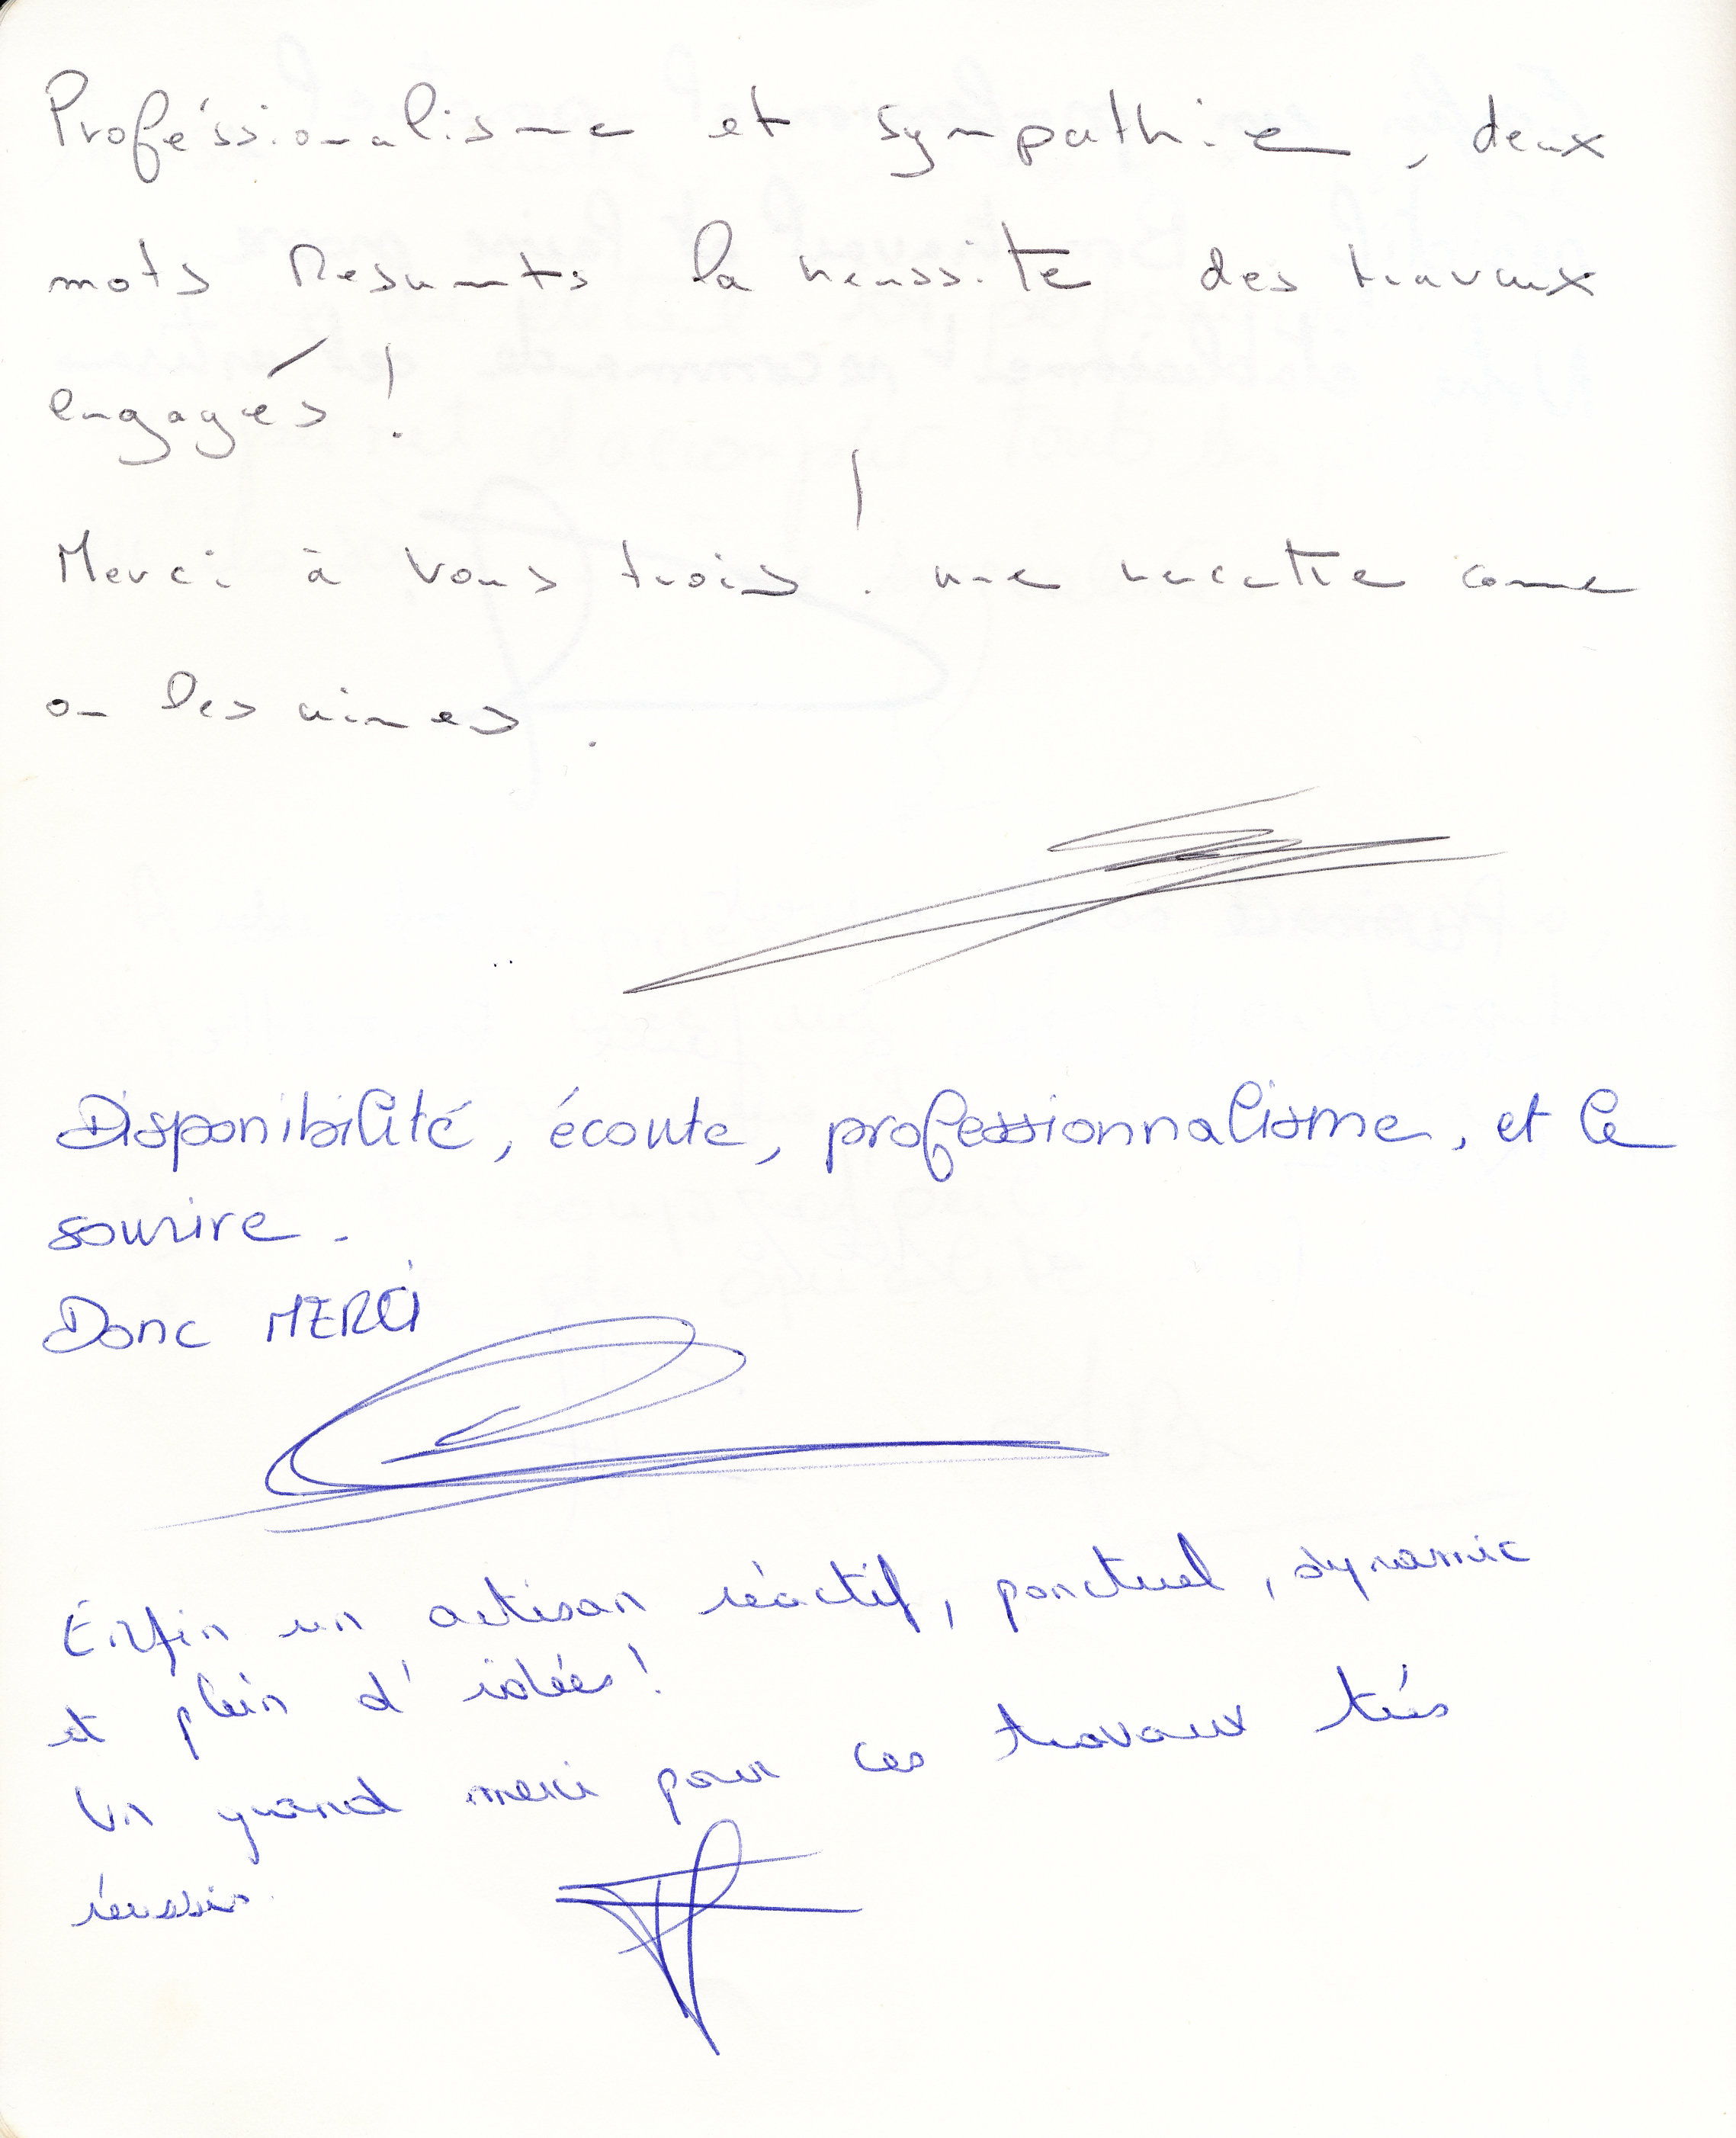 Proféssionalisme et sympathie, deux
mots Resumants la reussite des travaux
engagés !
Merci à vous trois ! une recette comme
on les aimes.
Disponibilité, écoute, professionnalisme, et le
sourire.
Donc MERCI
Enfin un artisan réactif, ponctuel, dynamic
et plein d'idées !
Un grand merci pour ces travaux très
réussis.